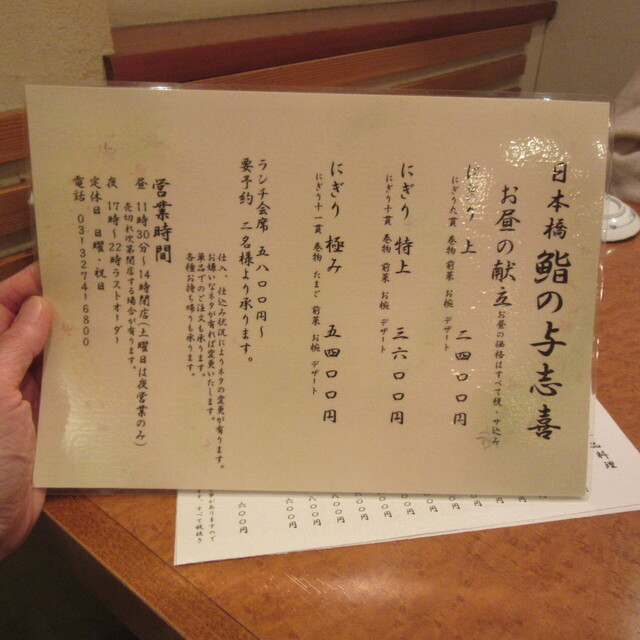 日本橋 鮨の与志喜
お昼の献立 お昼の価格はすべて税・サ込み
にぎり 上 二四〇〇円
にぎり九貫 巻物 前菜 お椀 デザート
にぎり 特上 三六〇〇円
にぎり十貫 巻物 前菜 お椀 デザート
にぎり 極み 五四〇〇円
にぎり十一貫 巻物 たまご 前菜 お椀 デザート
ランチ会席 五八〇〇円～
要予約 二名様より承ります。
仕入、仕込み状況によりネタの変更が有ります。
お嫌いなネタが有れば変更いたします。
単品でのご注文も承ります。
各種お持ち帰りも承ります。
営業時間
昼 11時30分～14時閉店(土曜日は夜営業のみ)
売切れ次第閉店する場合が有ります。
夜 17時～22時ラストオーダー
定休日 日曜・祝日
電話 03-3274-6800
品料理
〇〇円
〇〇円
〇〇円
〇〇円
六〇〇円
六〇〇円
すべて税抜き